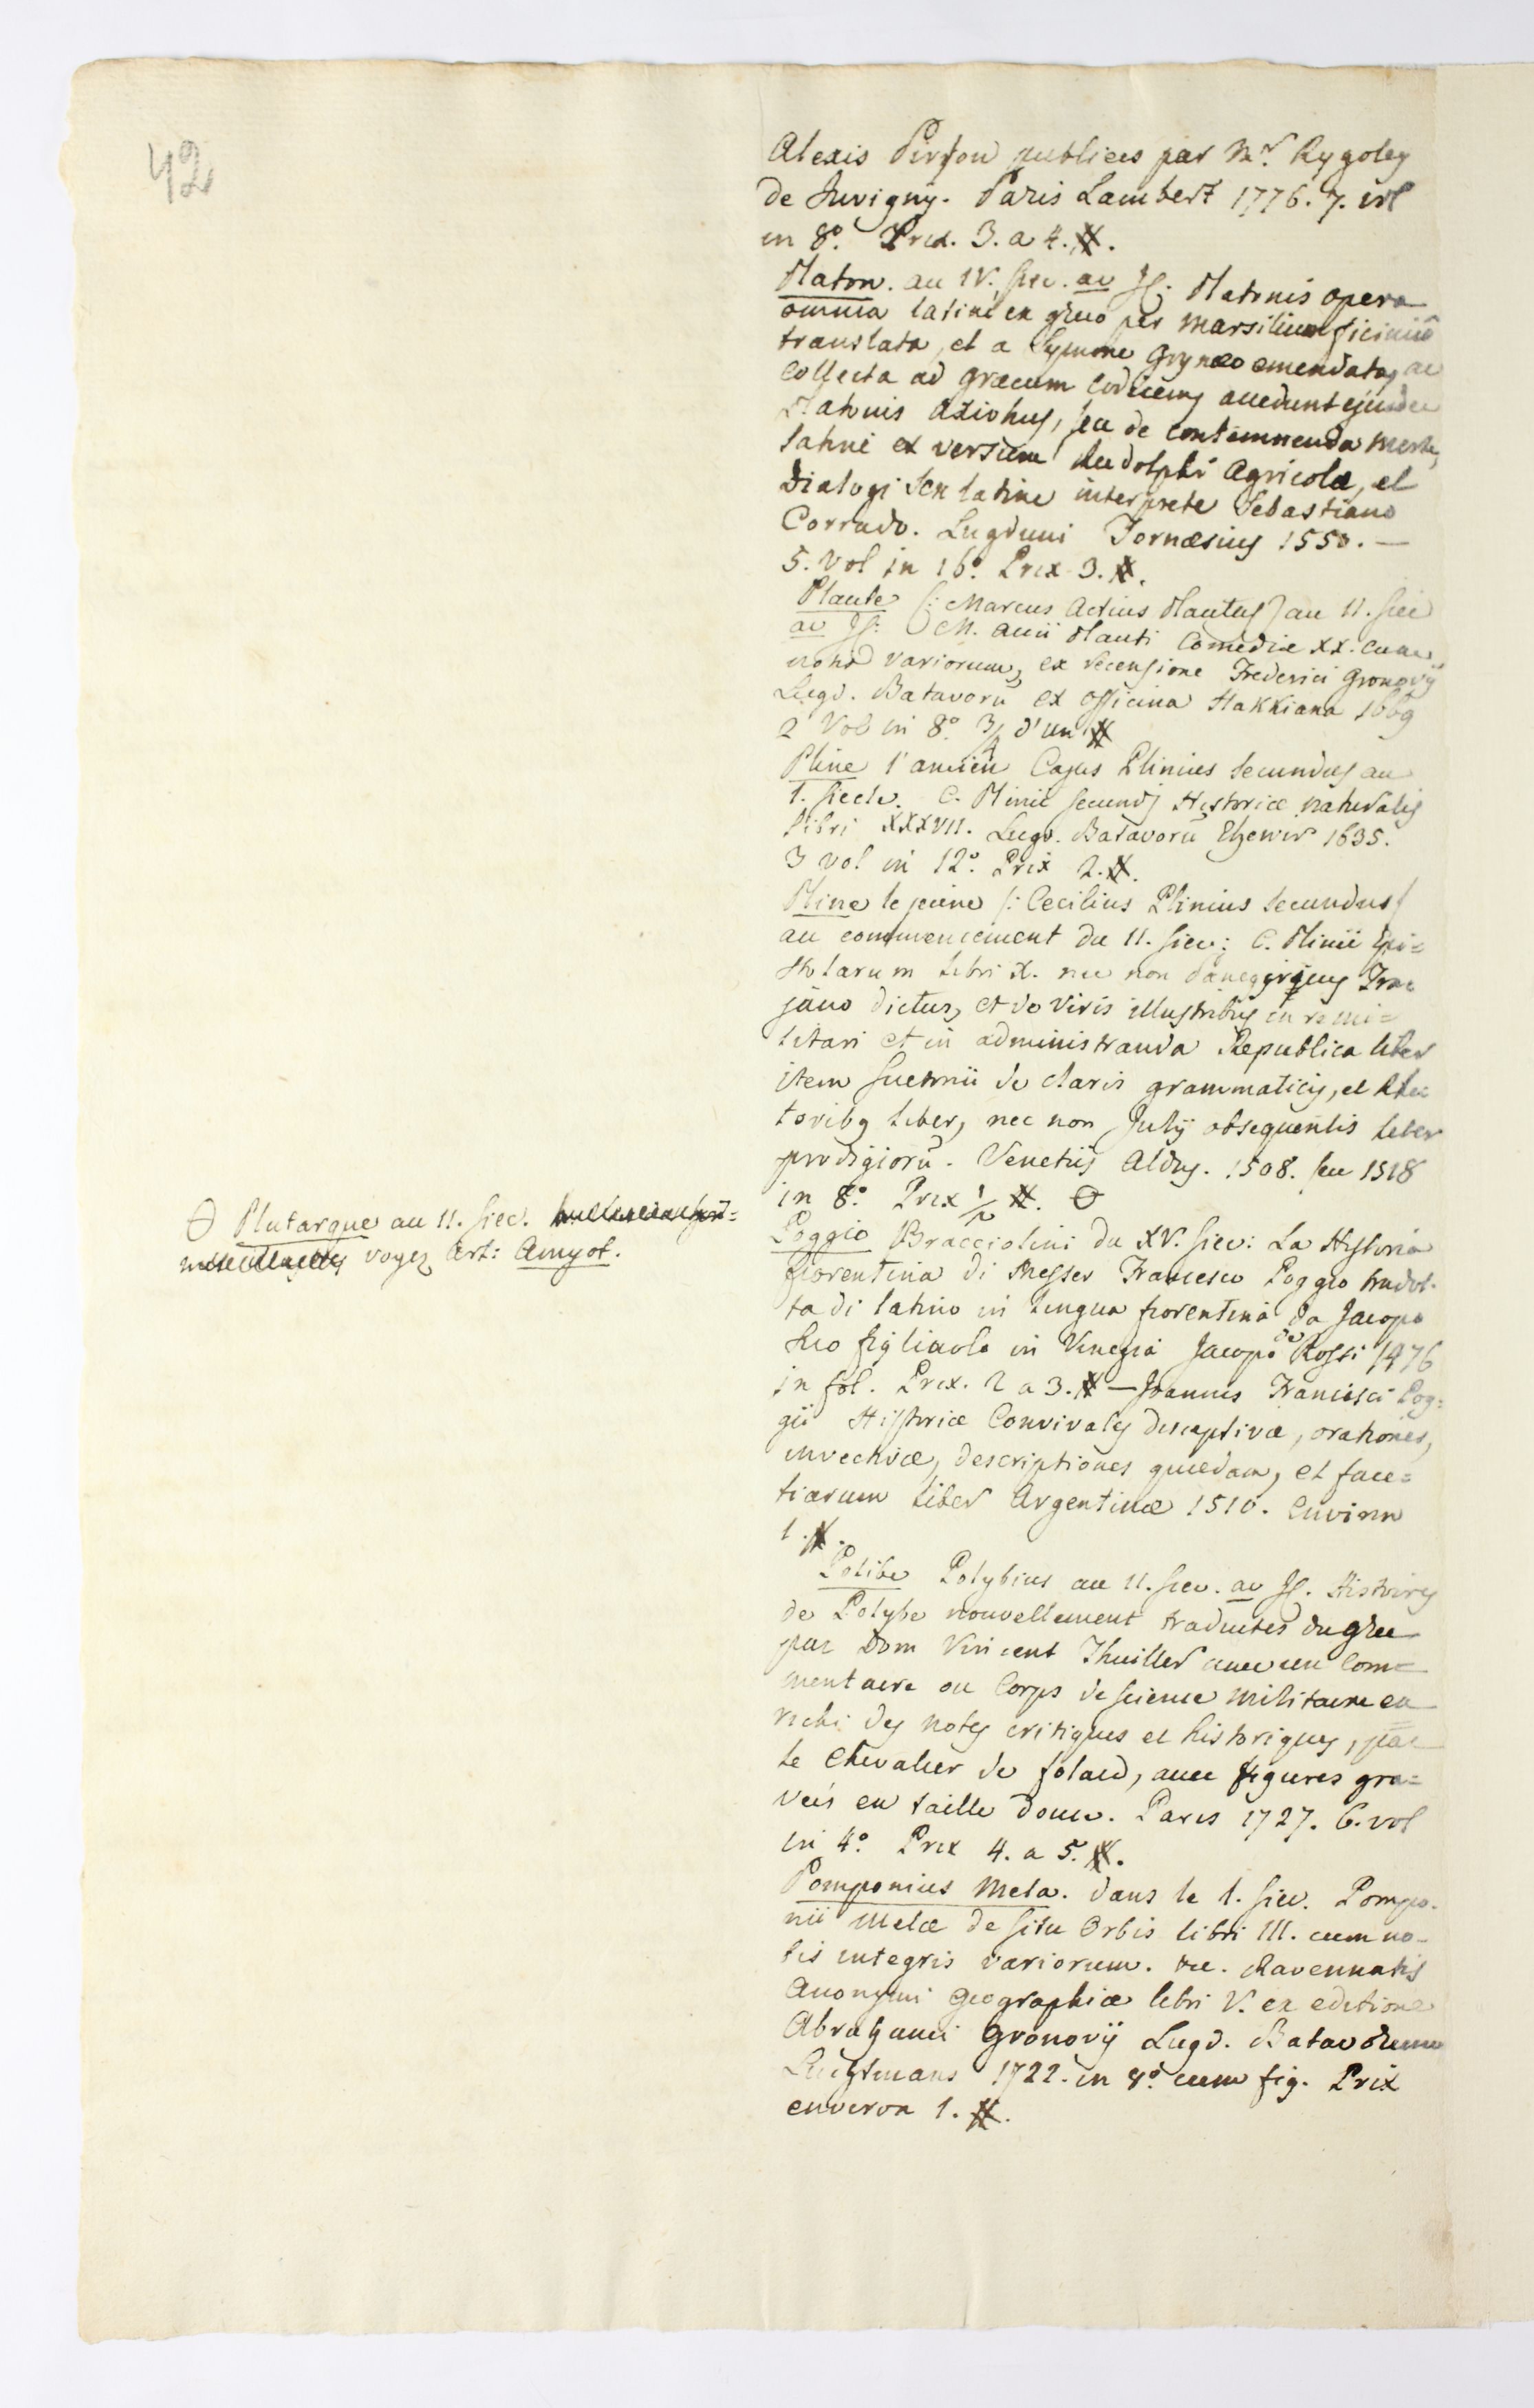 42
Alexis Piryon publiees par Mr. Rygoley
de Juvigny. Paris Lambert 1776. 7. vol
in 8o. Prix. 3. a 4. #.
Platon. au IV. siec. av JC. Platonis opera
omnia latine ex graeco per Marsilium ficinũ
translata, et a Symone Grynaeo emendata, ac
collecta ad graecum codicem, accedunt ejusdem
Platonis Axiohus, seu de contemnenda morte,
latine ex versione Rudolphi Agricolae, et
Dialogi sex latine interprete Sebastiano
Corrado. Lugduni Tornaesius 1550. —
5. vol in 16o. Prix 3. #.
Plaute (: Marcus Actius Plautus) au II. siec
av JC. M. Accii Plauti Comediae XX. cum
notis variorum, ex recensione Frederici Gronovij
Lugd. Batavorũ ex officina Hakkiana 1669
2 Vol in 8o. 3/4 d'un #
Pline l'ancien Cajus Plinius secundus au
I. siecle. C. Plinii secundi Historiae naturalis
libri XXXVII. Lugd. Batavorũ Elzevir 1635.
3 vol in 12o. Prix 2. #.
Pline le jeune (: Cecilius Plinius secundus)
au commencement du II. siec: C. Plinii Epi=
stolarum libri X. nec non Panegyricus Tra
jano dictus, et de viris illustribus in re mi=
litari et in administranda Republica liber
item Suetonii de claris grammaticis, et Rhe
toribq liber, nec non Julij obsequentis liber
prodigiorũ. Venetiis Aldus. 1508. seu 1518
in 8o. Prix 1/2 #. Θ
Θ Plutarque au II. siec.
voyez Art: Amyot.
Poggio Bracciolini du XV. siec: La Hystoria
fiorentina di Messer Francesco Poggio tradot-
ta di latino in lingua fiorentina da Jacopo
suo figliuolo in Venegia Jacopo de Rossi 1476
in fol. Prix. 2 a 3. # — Joannis Francisci Pog=
gii Historiae Convivales disceptivae, orationes,
invectivae, descriptiones quaedam, et face=
tiarum liber Argentinae 1510. Environ
1. #.
Polibe Polybius au II. siec. av JC. Histoires
de Polybe nouvellement traduites du grec
par Dom Vincent Thuiller avec un Com=
mentaire ou Corps de science militaire en
richi des notes critiques et historiques, par
le Chevalier de folard, avec figures gra=
veés en taille douce. Paris 1727. 6. vol
in 4o. Prix 4. a 5. #.
Pomponius Mela. dans le I. siec. Pompo-
nii Melae de situ Orbis libri III. cum no-
tis integris variorum. acc. Ravennatis
Anonymi Geographiae libri V. ex editione
Abrahami Gronovij Lugd. Batavorum
Luchtmans 1722. in 8o. cum fig. Prix
environ 1. #.